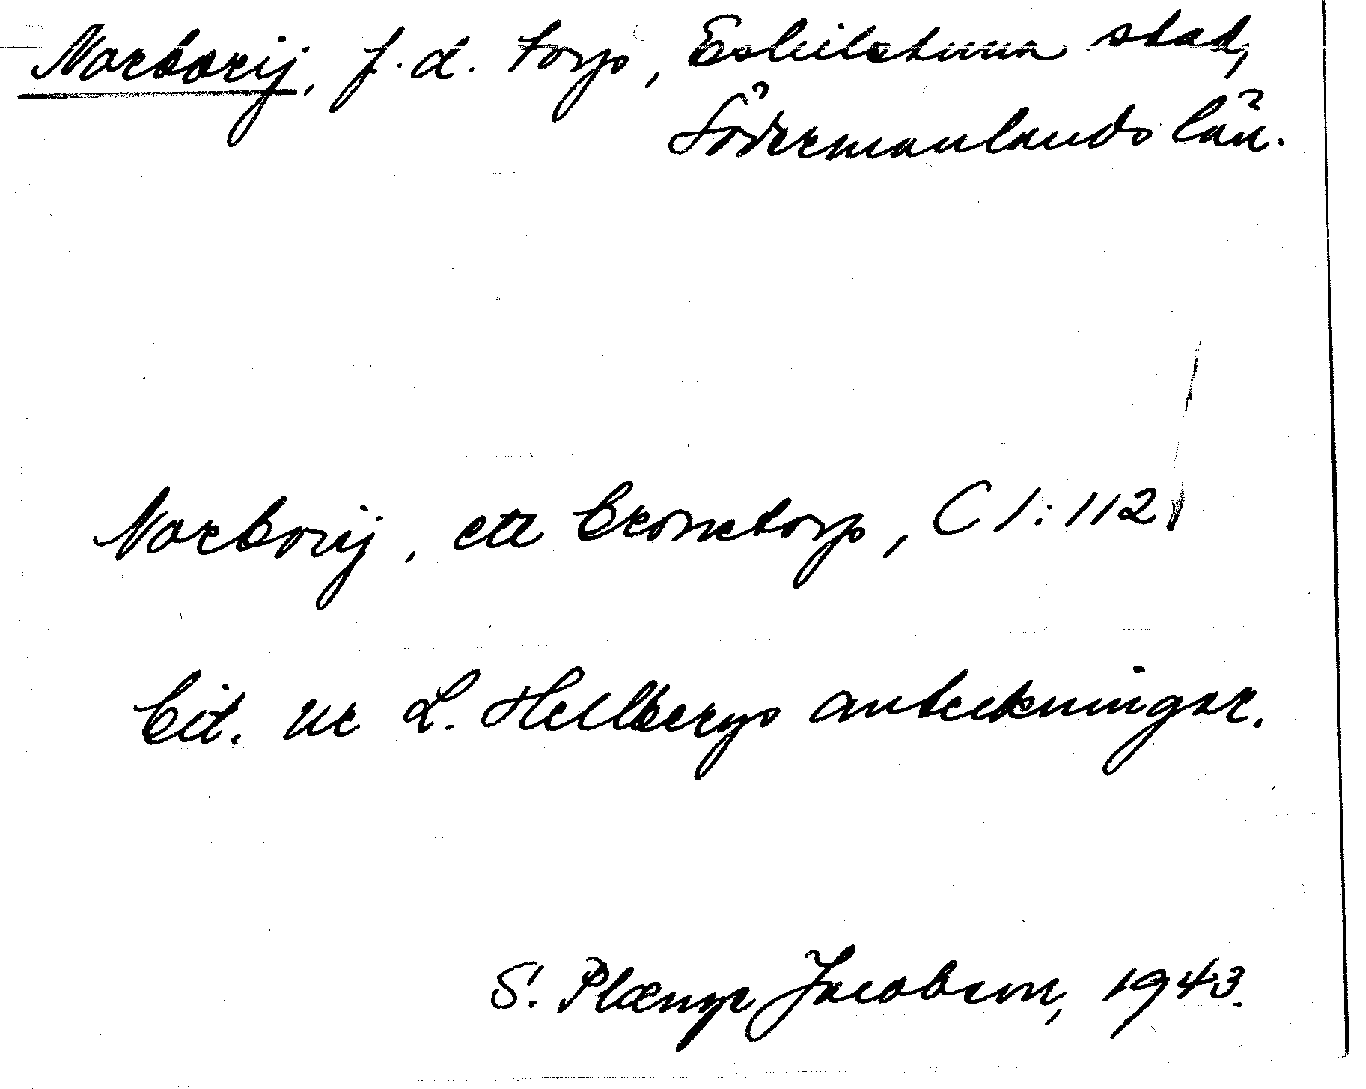 Norborij, f. d. torp, Eskilstuna stad,
Södermanlands län.
Norborij, ett Cronetorp, C 1:112
Cit. ur L. Hellbergs anteckningar.
S. Plænge Jacobson, 1943.